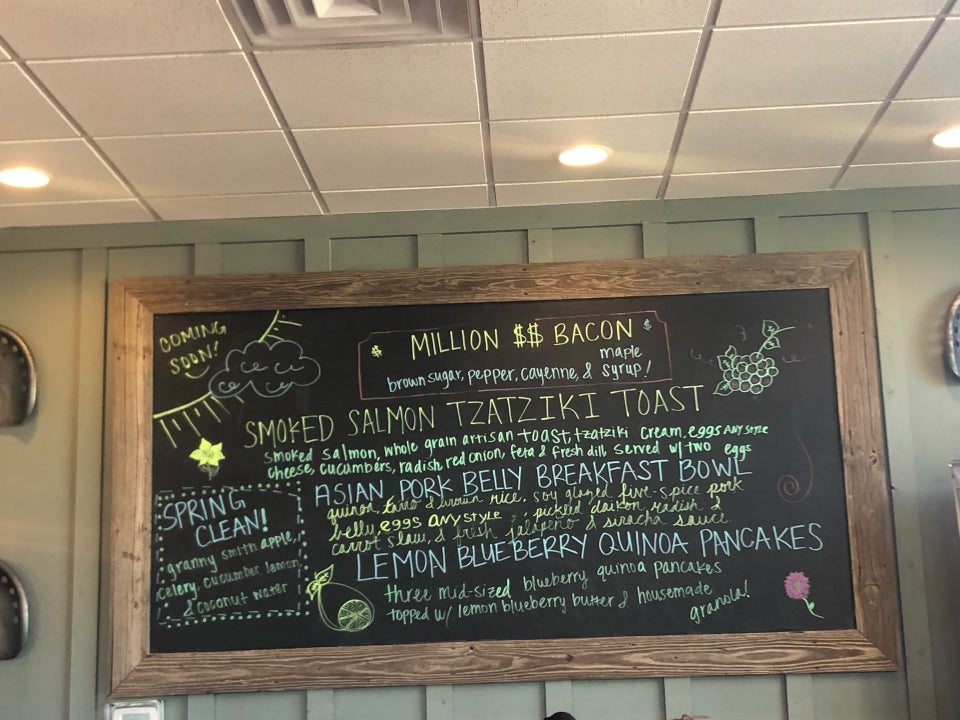 COMING
SOON!
MILLION $$ BACON
brown sugar, pepper, cayenne, & maple syrup!
SMOKED SALMON TZATZIKI TOAST
smoked salmon, whole grain artisan toast, tzatziki cream, eggs ANY STYLE
cheese, cucumbers, radish, red onion, feta & fresh dill served w/ two eggs
ASIAN PORK BELLY BREAKFAST BOWL
quinoa, & brown rice, soy glazed five-spice pork
belly, eggs ANY STYLE, pickled daikon radish &
carrot slaw, & fresh jalapeño & siracha sauce
LEMON BLUEBERRY QUINOA PANCAKES
three mid-sized blueberry quinoa pancakes
topped w/ lemon blueberry butter & housemade
granola!
SPRING
CLEAN!
granny smith apple,
celery, cucumber lemon,
& coconut water